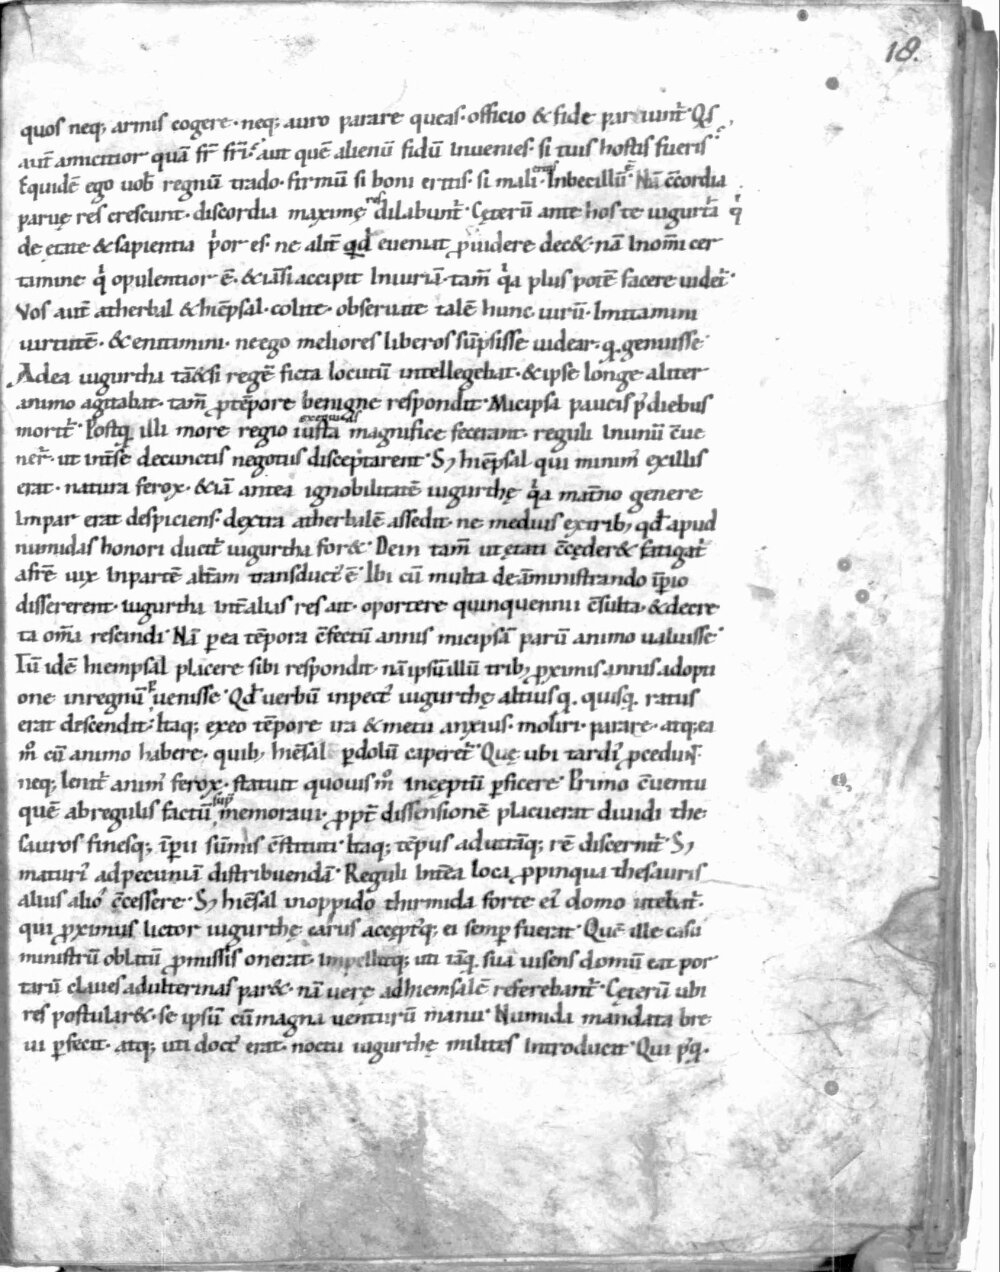 18.
quos neq; armis cogere· neq; auro parare queas· officio & fide pariunt᷑· Qs
aut̄ amicitior quā fr̄ fr̄i· aut quē alienū fidū inuenies· si tuis hostis fueris·
Equidē ego uob̄ regnū trado· firmū si boni eritis· si mali· inbecillū· Nā c̄cordia
paruę res crescunt· discordia maximę dilabunt᷑· Cęterū ante hos te iugurtā q̍
de ętate & sapientia p̍or es· ne alit̄ qd̄ eueniat p̱uidere dec&· nā inom̄i cer
tamine q̍ opulentior ē· & iāsi accipit iniuriā· tam̄ q̍a plus potē facere uidet᷑·
Vos aut̄ atherbal & hiēpsal· colite· obseruate talē hunc uirū· Imitamini
uirtutē· & enitimini· ne ego meliores liberos sūpsisse uidear· q̄ genuisse·
Adea iugurtha tā&si regē ficta locutū intellegebat· & ipse longe aliter
animo agitabat· tam̄ p̱tēpore benigne respondit· Micipsa paucis p̄ diebus
morit᷑· Postq̄ illi more regio iusta exequias magnifice fecerant· reguli inunū c̄ue
ner̄· ut int̄se decunctis negotiis discep̄tarent· S; hiēpsal qui minim᷒ exillis
erat· natura ferox· & iā antea ignobilitatē iugurthę q̍a mat̄no genere
impar erat despiciens· dextra atherbalē assedit· ne medius extrib; qd̄ apud
numidas honori ducit᷑ iugurtha for&· Dein tam̄ ut ętati c̄ceder& fatigat᷑
afrē uix inpartē alt̄am transduct᷒ ē· Ibi cū multa de am̄inistrando ip̄io
dissererent· iugurtha int̄ alias res ait· oportere quinquennii c̄sulta· & decre
ta om̄ia rescindi· Nā p̱ea tēpora c̄fectū annis micipsā parū animo ualuisse·
Tū idē hiempsal placere sibi respondit· nā ipsū illū trib; p̱ximis annis adopti
one inregnū p̱uenisse· Qd̄ uerbū inpect᷒ iugurthę altius q̄ quisq̄ ratus
erat descendit· Itaq; exeo tēpore ira & metu anxius· moliri· parare· atq; ea
m̊ cū animo habere· quib; hiēsal p̱dolū caperet᷑· Quę ubi tardi᷒ p̱cedunt·
neq; lenit᷑ anim᷒ ferox· statuit quouis m̊ inceptū p̱ficere· Primo c̄uentu
quē ab regulis factū sup̄ memoraui· p̱pt̄ dissensionē placuerat diuidi the
sauros finesq; ip̄ii sūmis c̄stituti· Itaq; tēpus ad utrāq; rē discernit᷑· S;
maturi᷒ ad pecuniā distribuendā· Reguli int̄ea loca p̱pinqua thesauris
alius alio c̄cessere· S; hiēsal inoppido thirmida forte ei᷒ domo utebat᷑·
qui p̱ximus lictor iugurthę carus accept᷒q; ei semp̱ fuerat· Quē ille casu
ministrū oblatū p̱missis onerat· impellitq; uti tāq̄ suā uisens domū eat por
tarū claues adulterinas par&· nā uerę ad hiemsalē referebant᷑· Cęterū ubi
res postular&· se ipsū cū magna uenturū manu· Numida mandata bre
ui p̱fecit· atq; uti doct᷒ erat· noctu iugurthę milites introducit· Qui p̱q̄·